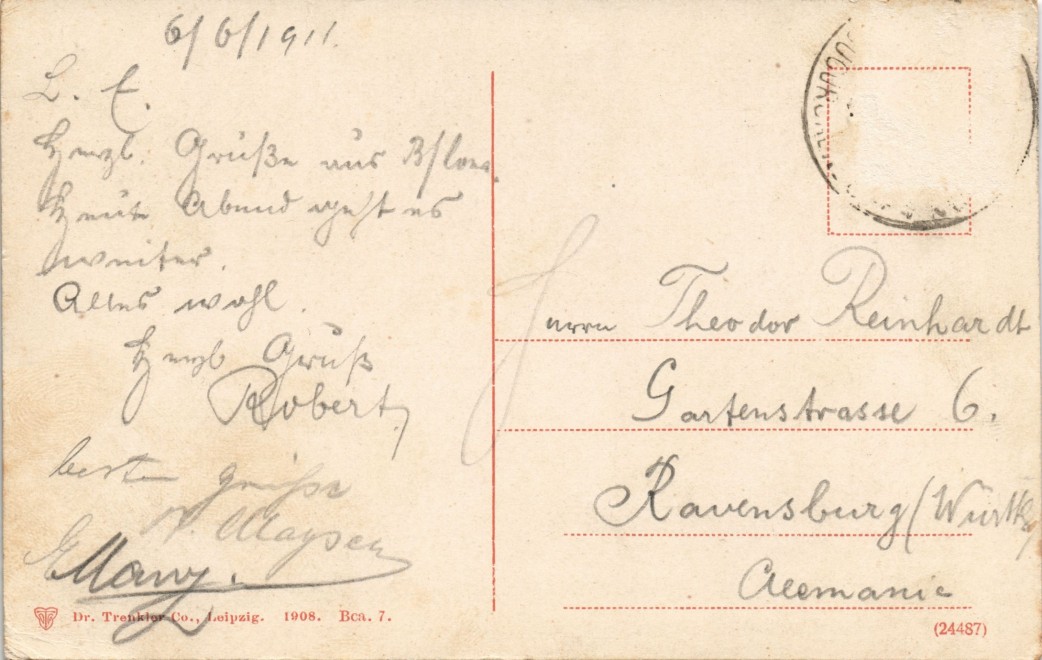 6/6/1911.
L. E.
Herzl. Grüße aus B/lona.
Heute Abend geht es
weiter.
Alles wohl.
Herzl Gruß
Robert,
besten grüsse
Herrn Theodor Reinhardt
Gartenstrasse 6.
Ravensburg (Württbg
Alemania
Dr. Trenkler Co., Leipzig. 1908. Bca. 7.
(24487)